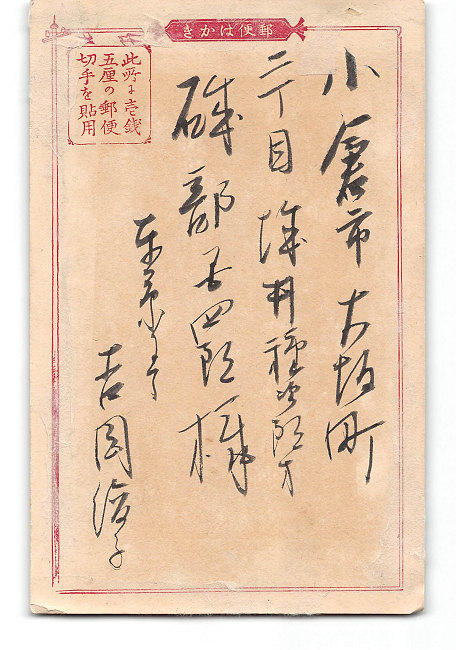 郵便はかき
此所に壱錢
五厘の郵便
切手を貼用
小倉市大坂町
二丁目 井種次郎方
部 四郎様
東京ニテ
吉岡 子